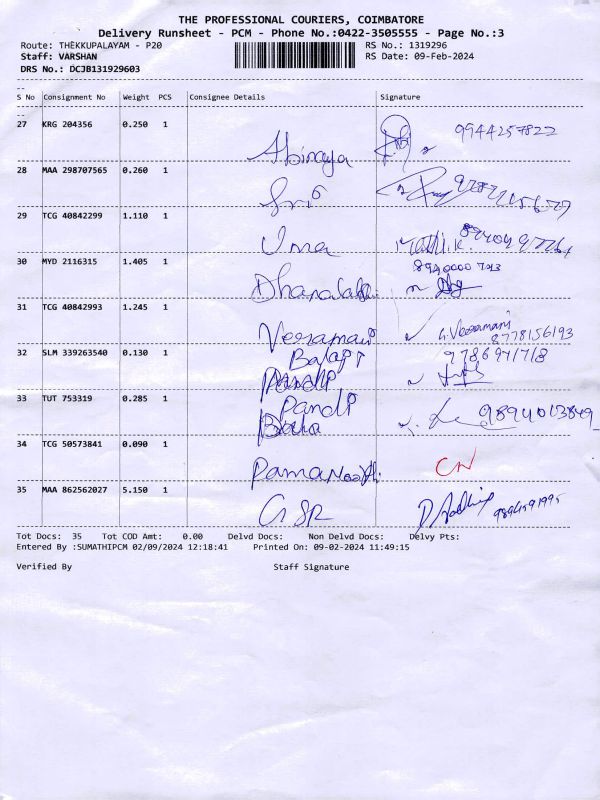 THE PROFESSIONAL COURIERS, COIMBATORE
Delivery Runsheet - PCM - Phone No.:0422-3505555 - Page No.:3
Route: THEKKUPALAYAM - P20 RS No.: 1319296
Staff: VARSHAN RS Date: 09-Feb-2024
DRS No.: DCJB131929603
S No Consignment No Weight PCS Consignee Details Signature
27 KRG 204356 0.250 1 Abinaya 9944257822
28 MAA 298707565 0.260 1 Sri
29 TCG 40842299 1.110 1 Uma
30 MYD 2116315 1.405 1
31 TCG 40842993 1.245 1 Veeramani G. Veeramani
8778156193
32 SLM 339263540 0.130 1 Balaji
33 TUT 753319 0.285 1 Pandi 9894013849
34 TCG 50573841 0.090 1 CN
35 MAA 862562027 5.150 1 GSR
Tot Docs: 35 Tot COD Amt: 0.00 Delvd Docs: Non Delvd Docs: Delvy Pts:
Entered By :SUMATHIPCM 02/09/2024 12:18:41 Printed On: 09-02-2024 11:49:15
Verified By Staff Signature